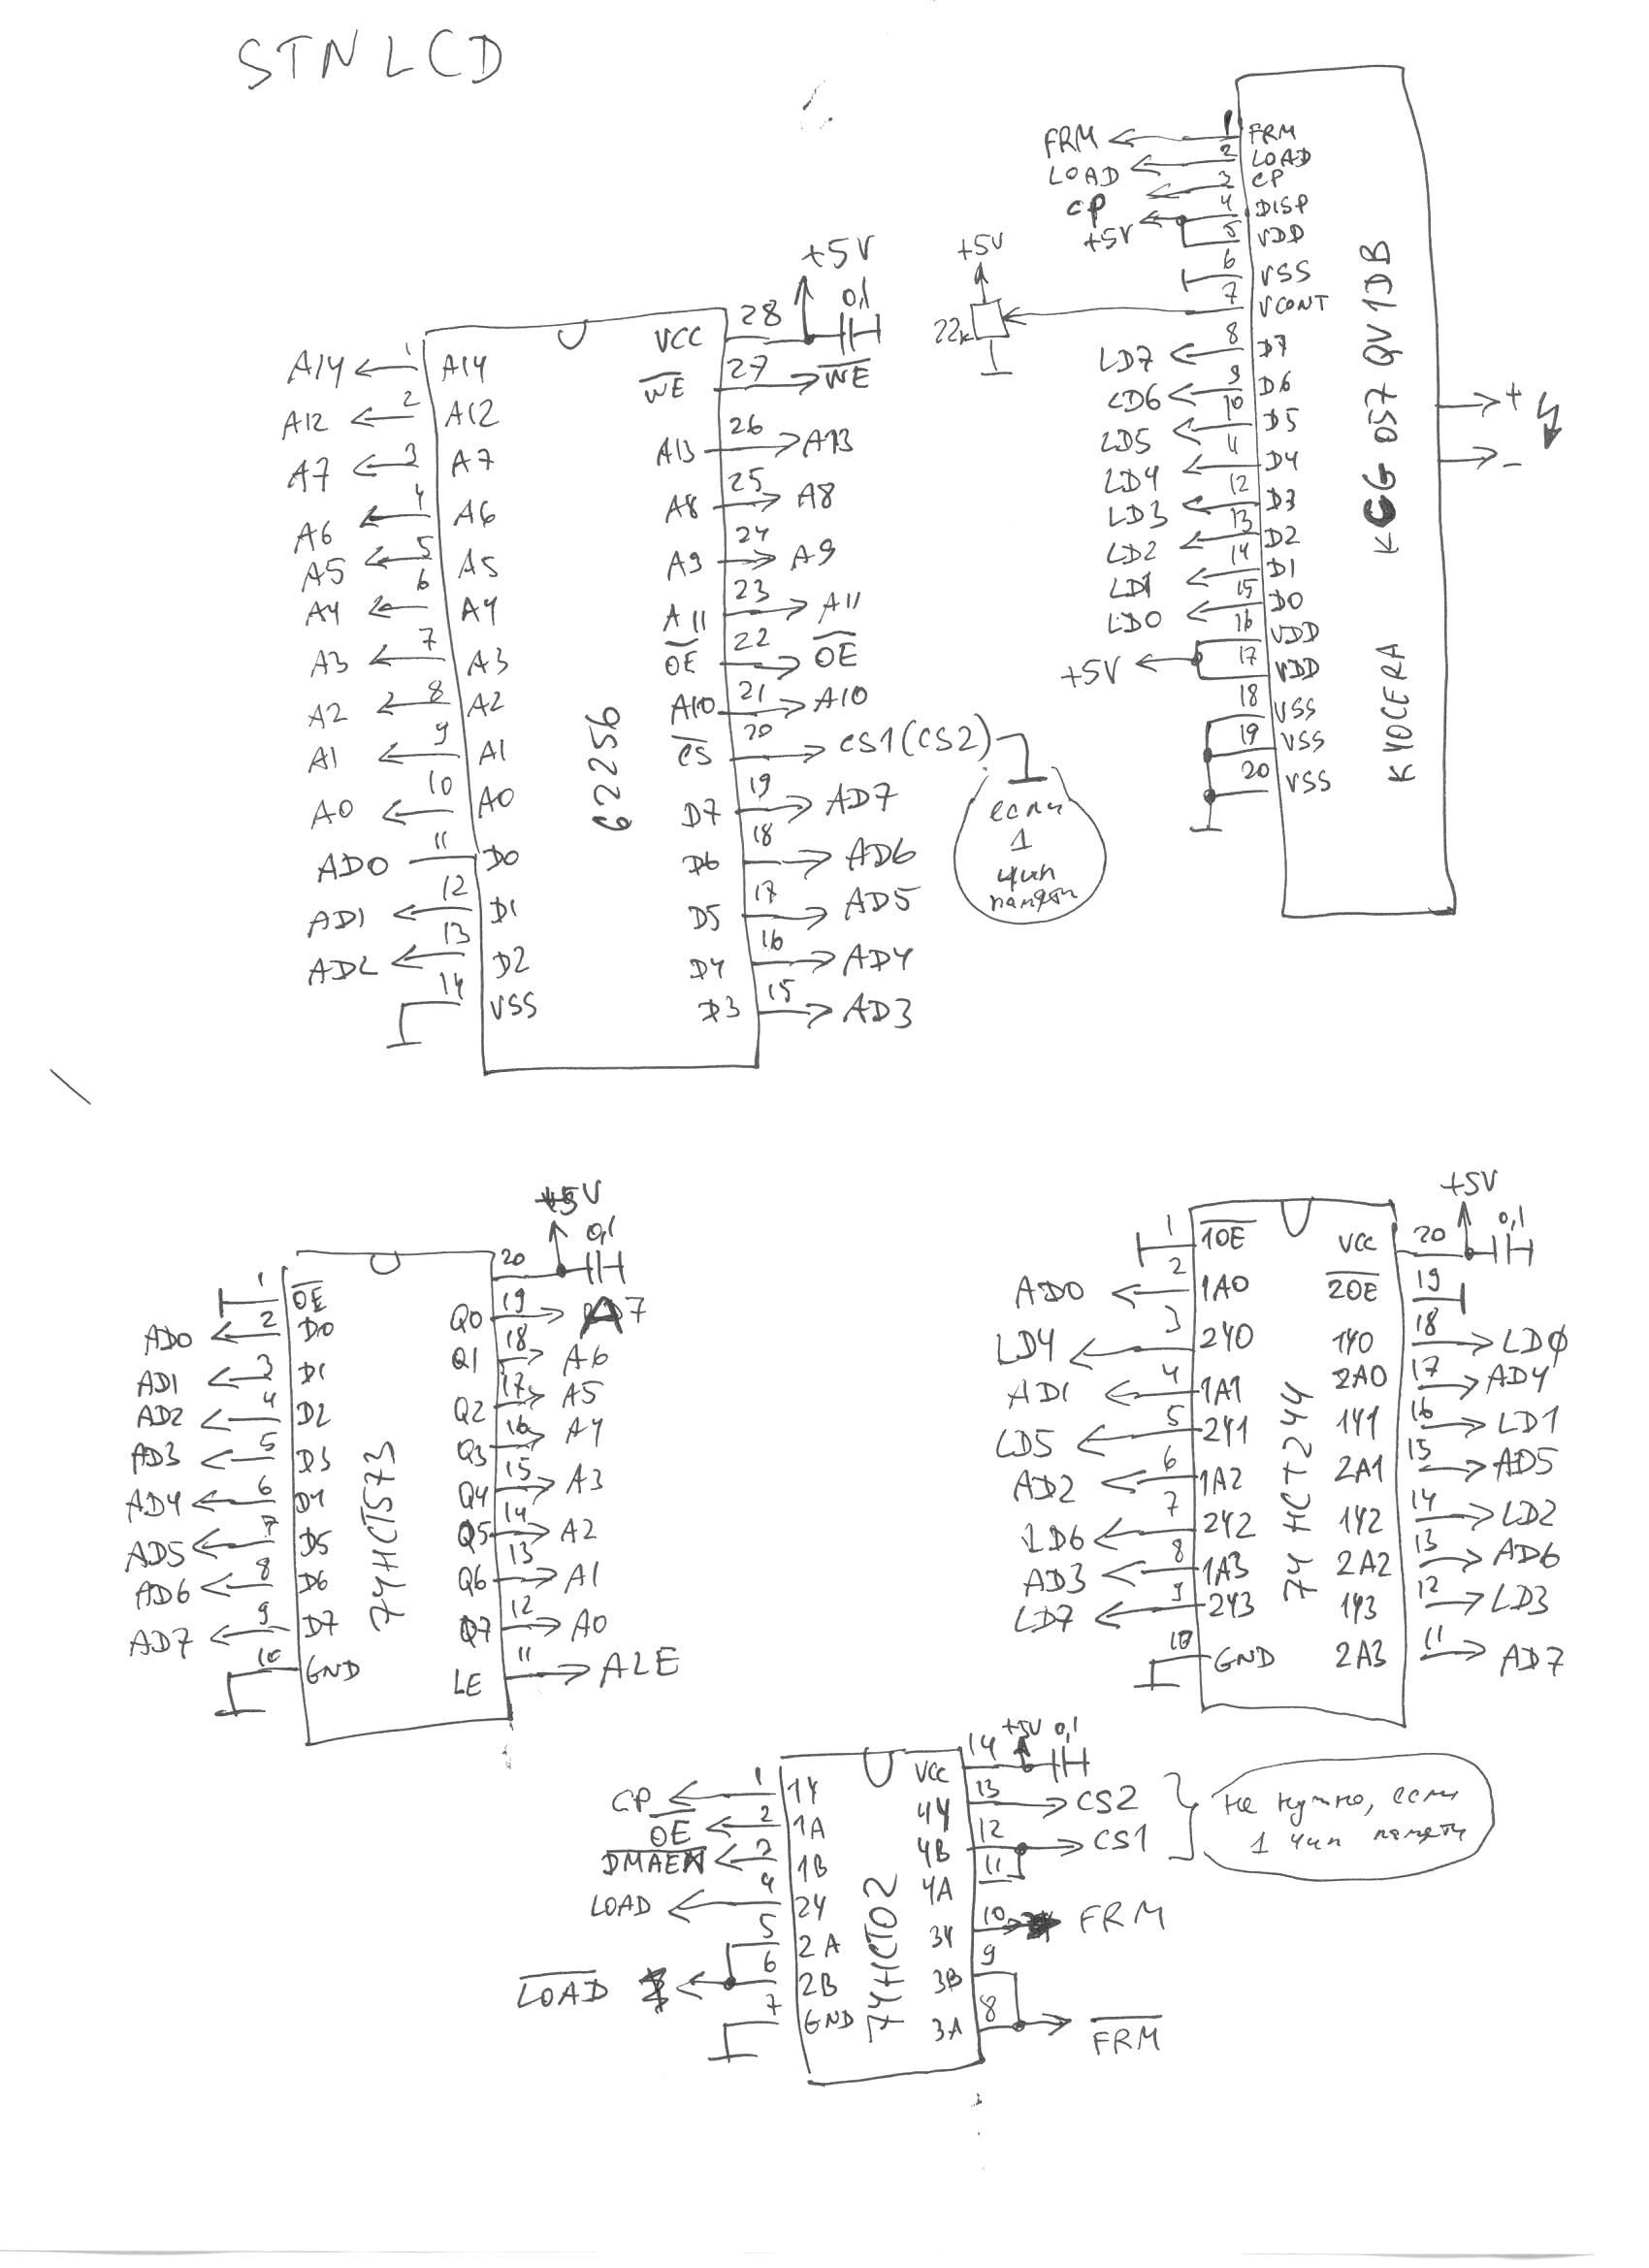 STN LCD
FRM 1 FRM
LOAD 2 LOAD
CP 3 CP
+5V 4 DISP
5 VDD
6 VSS
+5V 22к 7 VCONT
LD7 8 D7
LD6 9 D6
LD5 10 D5
LD4 11 D4
LD3 12 D3
LD2 13 D2
LD1 14 D1
LD0 15 D0
16 VDD
+5V 17 VDD
18 VSS
19 VSS
20 VSS
KYOCERA KCG 057 QV1DB
+
-
+5V
0,1
A14 1 A14 VCC 28
A12 2 A12 WE 27 WE
A7 3 A7 A13 26 A13
A6 4 A6 A8 25 A8
A5 5 A5 A9 24 A9
A4 6 A4 A11 23 A11
A3 7 A3 OE 22 OE
A2 8 A2 A10 21 A10
A1 9 A1 CS 20 CS1(CS2)
A0 10 A0 D7 19 AD7
AD0 11 D0 D6 18 AD6
AD1 12 D1 D5 17 AD5
AD2 13 D2 D4 16 AD4
14 VSS D3 15 AD3
62256
если
1
чип
памяти
+5V
0,1
1 OE 20
AD0 2 D0 Q0 19 A7
AD1 3 D1 Q1 18 A6
AD2 4 D2 Q2 17 A5
AD3 5 D3 Q3 16 A4
AD4 6 D4 Q4 15 A3
AD5 7 D5 Q5 14 A2
AD6 8 D6 Q6 13 A1
AD7 9 D7 Q7 12 A0
10 GND LE 11 ALE
74HCT573
+5V
0,1
1 1OE VCC 20
AD0 2 1A0 2OE 19
LD4 3 2Y0 1Y0 18 LD0
AD1 4 1A1 2A0 17 AD4
LD5 5 2Y1 1Y1 16 LD1
AD2 6 1A2 2A1 15 AD5
LD6 7 2Y2 1Y2 14 LD2
AD3 8 1A3 2A2 13 AD6
LD7 9 2Y3 1Y3 12 LD3
10 GND 2A3 11 AD7
74HCT244
+5V 0,1
CP 1 1Y VCC 14
OE 2 1A 4Y 13 CS2
DMAEN 3 1B 4B 12 CS1
LOAD 4 2Y 4A 11
5 2A 3Y 10 FRM
LOAD 6 2B 3B 9
7 GND 3A 8 FRM
74HCT02
не нужно, если
1 чип памяти